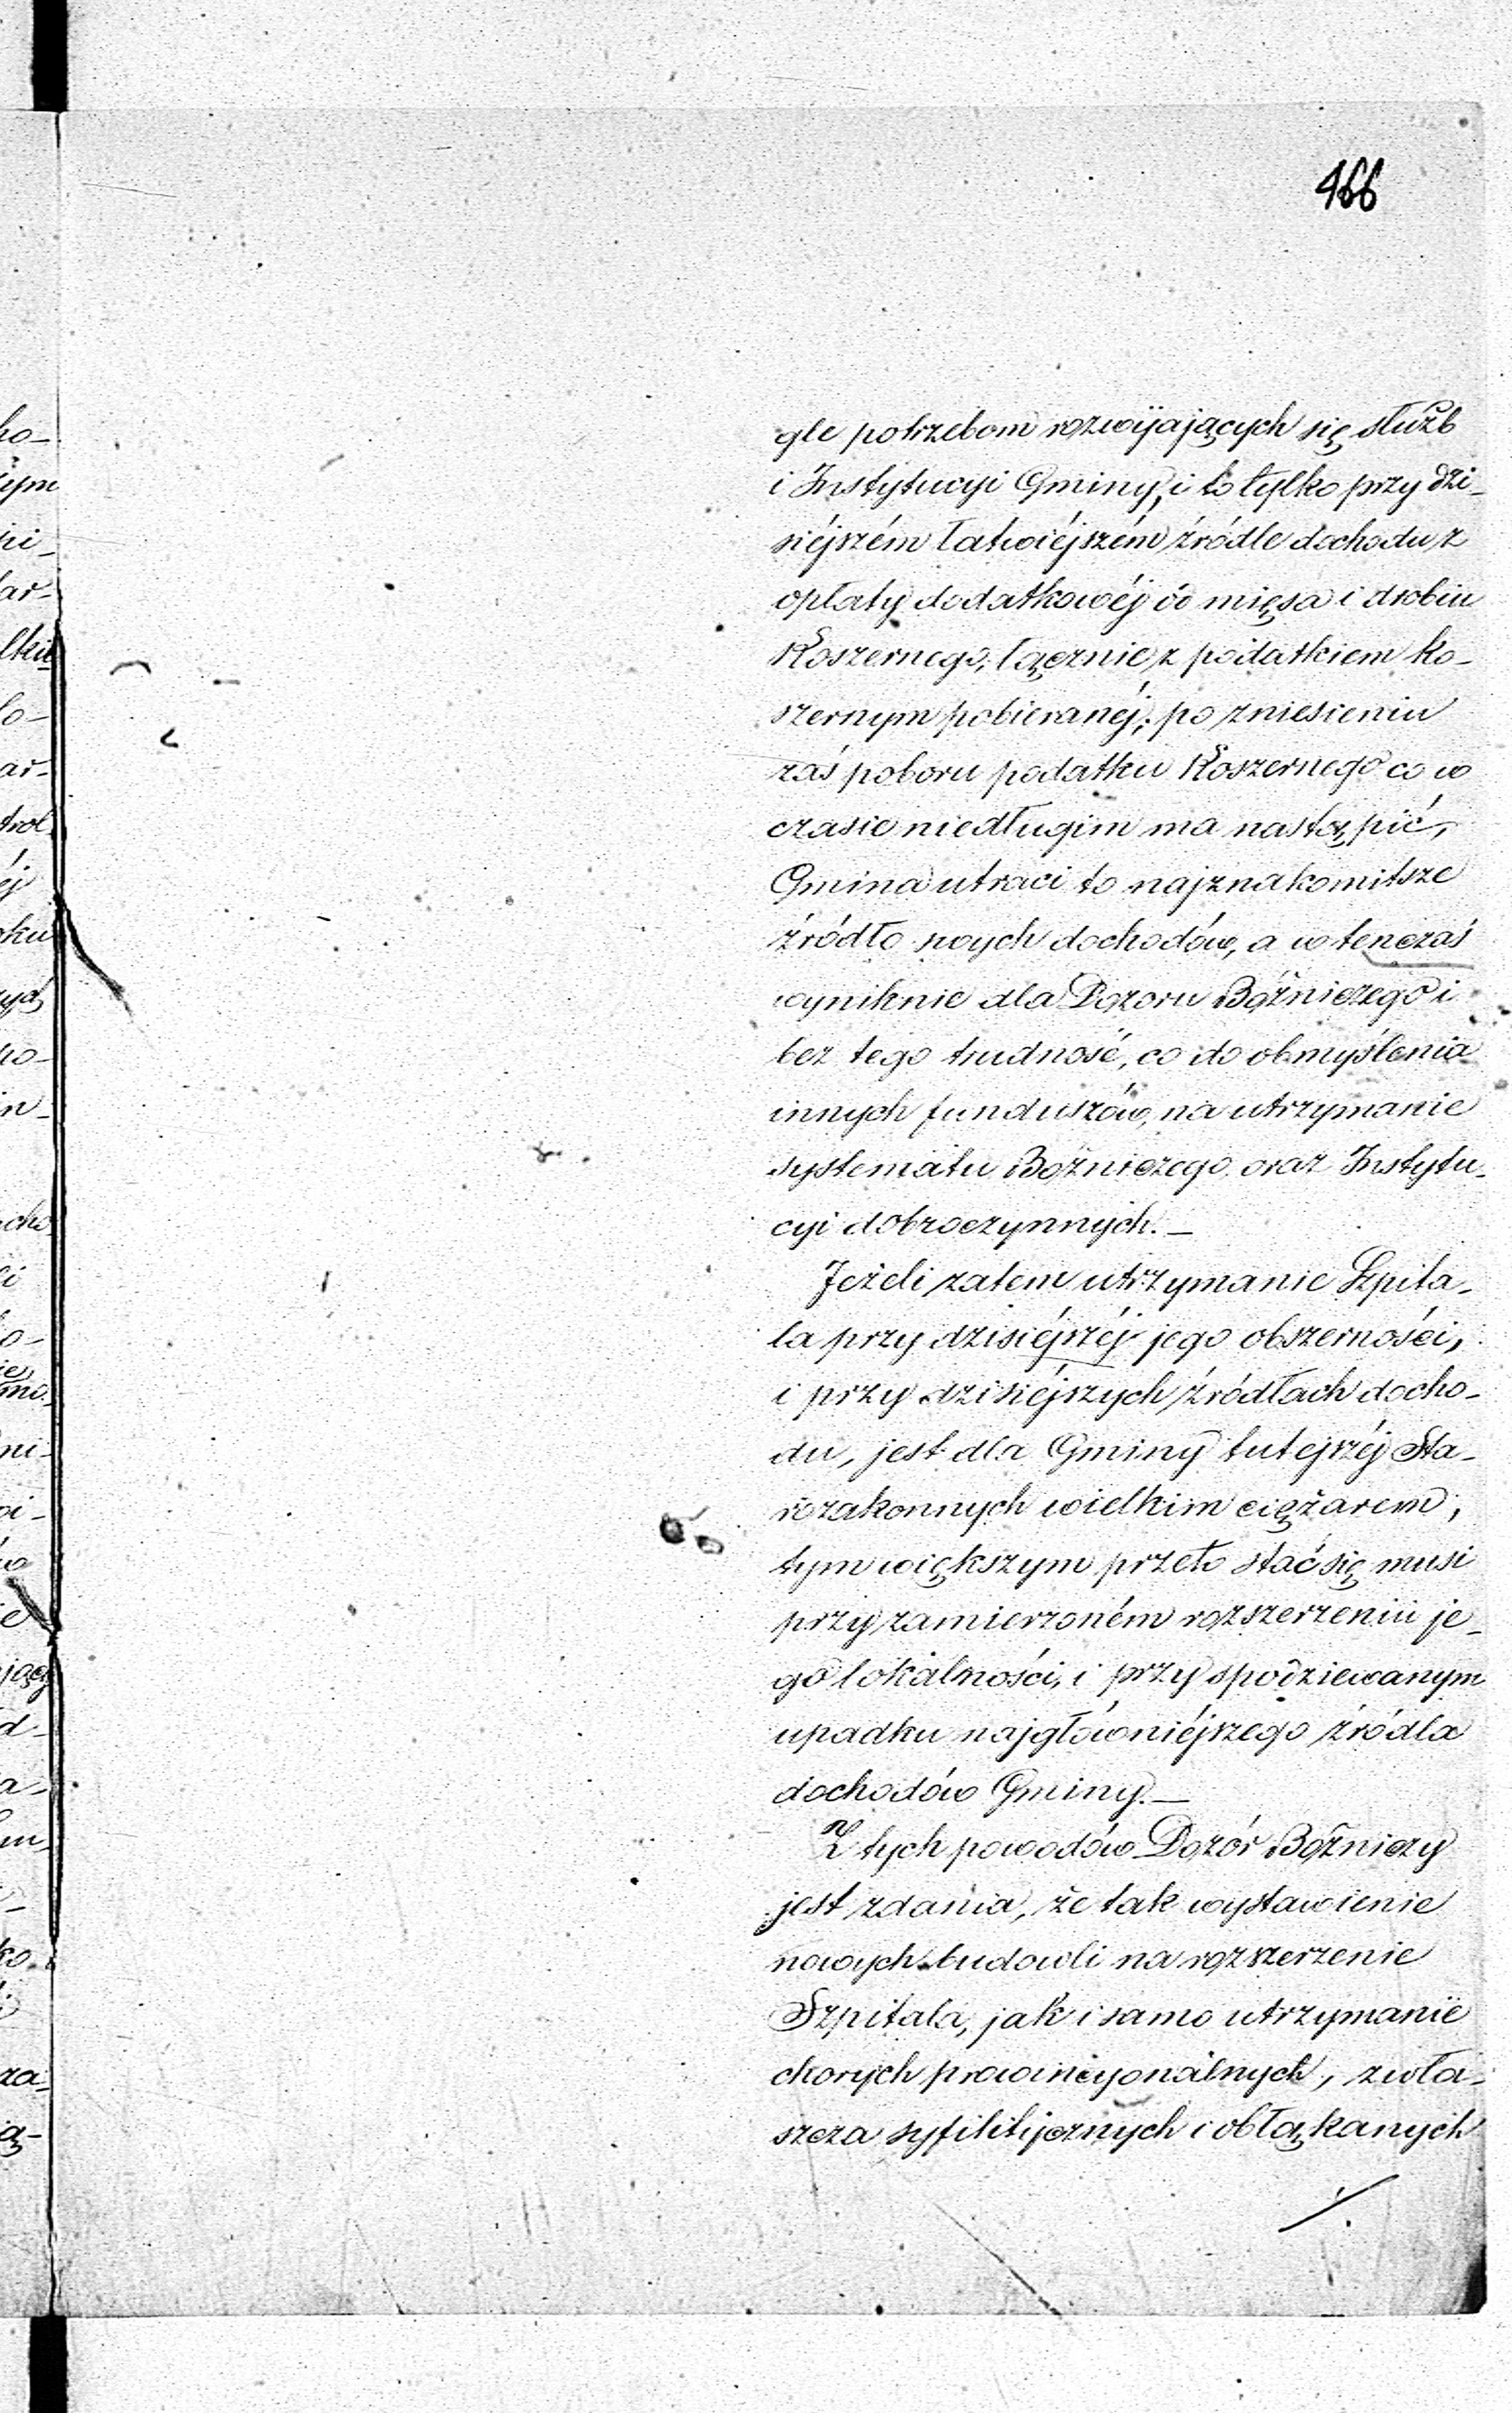 466
gle potrzebom rozwijających się służb
i Instytucyi Gminy, i to tylko przy dzi-
siéjszém łatwiéjszém źródle dochodu z
opłaty dodatkowéj od mięsa i drobiu
Koszernego, łącznie z podatkiem ko-
szernym pobieranéj; po zniesieniu
zaś poboru podatku Koszernego co w
czasie niedługim ma nastąpić,
Gmina utraci to najznakomitsze
źródło swych dochodów, a wtenczaś
wyniknie dla Dozoru Bóźniczego i
bez tego trudność, co do obmyślenia
innych funduszów, na utrzymanie
systematu Bóżniczego oraz Instytu-
cyi dobroczynnych. —
Jeżeli zatem utrzymanie Szpita-
la przy dzisiéjszéj jego obszerności,
i przy dzisiéjszych źródłach docho-
du, jest dla Gminy tutejszéj Sta-
rozakonnych wielkim ciężarem,
tym większym przeto stać się musi
przy zamierzoném rozszerzeniu je-
go lokalności, i przy spodziewanym
upadku najgłówniéjszego źródła
dochodów Gminy. —
Z tych powodów Dozór Bóżniczy
jest zdania, że tak wystawienie
nowych budowli na rozszerzenie
Szpitala, jak i samo utrzymanie
chorych prowincyonalnych, zwła-
szcza syfilitycznych i obłąkanych
./.